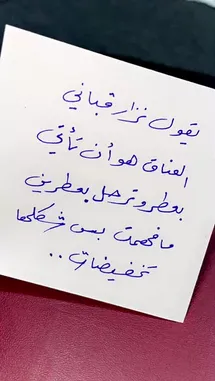 يقول نزار قباني
العناق هو أن تأتي
بعطر وترحل بعطرين
ما فهمت بس شكلها
تخفيضات ..